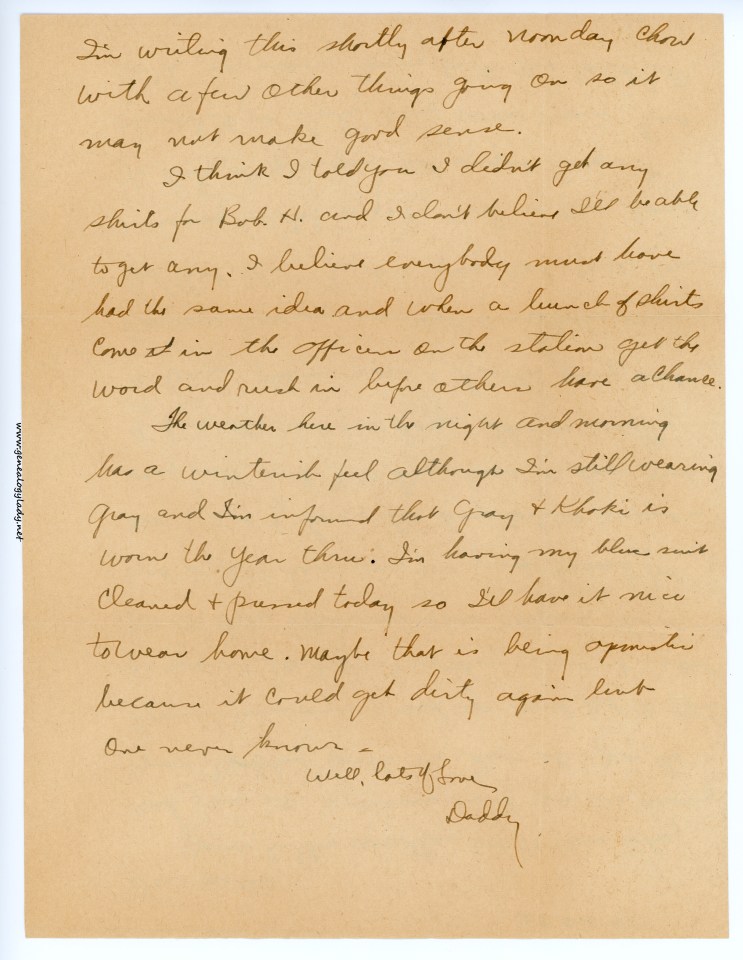 I'm writing this shortly after noonday chow
with a few other things going on so it
may not make good sense.
I think I told you I didn't get any
shirts for Bob H. and I don't believe I'll be able
to get any. I believe everybody must have
had the same idea and when a bunch of shirts
come in the officers on the station get the
word and rush in before others have a chance.
The weather here in the night and morning
has a winterish feel although I'm still wearing
gray and I'm informed that Gray + Khaki is
worn the year thru. I'm having my blue suit
cleaned + pressed today so I'll have it nice
to wear home. Maybe that is being opmistic
because it could get dirty again but
one never knows -
Well, lots of love,
Daddy
www.genealogylady.net